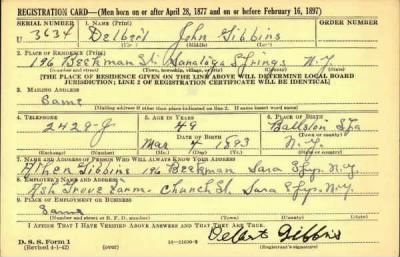 REGISTRATION CARD—(Men born on or after April 28, 1877 and on or before February 16, 1897)
SERIAL NUMBER 1. NAME (Print)
U 3634 Delbert John Gibbins
(First) (Middle) (Last)
2. PLACE OF RESIDENCE (Print)
196 Beekman St. Saratoga Springs N.Y.
(Number and street) (Town, township, village, or city) (County) (State)
[THE PLACE OF RESIDENCE GIVEN ON THE LINE ABOVE WILL DETERMINE LOCAL BOARD
JURISDICTION; LINE 2 OF REGISTRATION CERTIFICATE WILL BE IDENTICAL]
3. MAILING ADDRESS
Same
(Mailing address if other than place indicated on line 2. If same insert word same)
4. TELEPHONE 5. AGE IN YEARS 6. PLACE OF BIRTH
2428-J 49 Ballston Spa
DATE OF BIRTH
Mar 4 1893 N.Y.
(Exchange) (Number) (Mo.) (Day) (Yr.) (State or country)
7. NAME AND ADDRESS OF PERSON WHO WILL ALWAYS KNOW YOUR ADDRESS
Gibbins 196 Beekman Sara Spgs. N.Y
8. EMPLOYER'S NAME AND ADDRESS
Ash Grove Farm - Church St. Sara Spgs. N.Y.
9. PLACE OF EMPLOYMENT OR BUSINESS
Same
(Number and street or R. F. D. number) (Town) (County) (State)
I AFFIRM THAT I HAVE VERIFIED ABOVE ANSWERS AND THAT THEY ARE TRUE.
D. S. S. Form 1
(Revised 4-1-42) (over) 16—21630-2
Delbert Gibbins
(Registrant's signature)